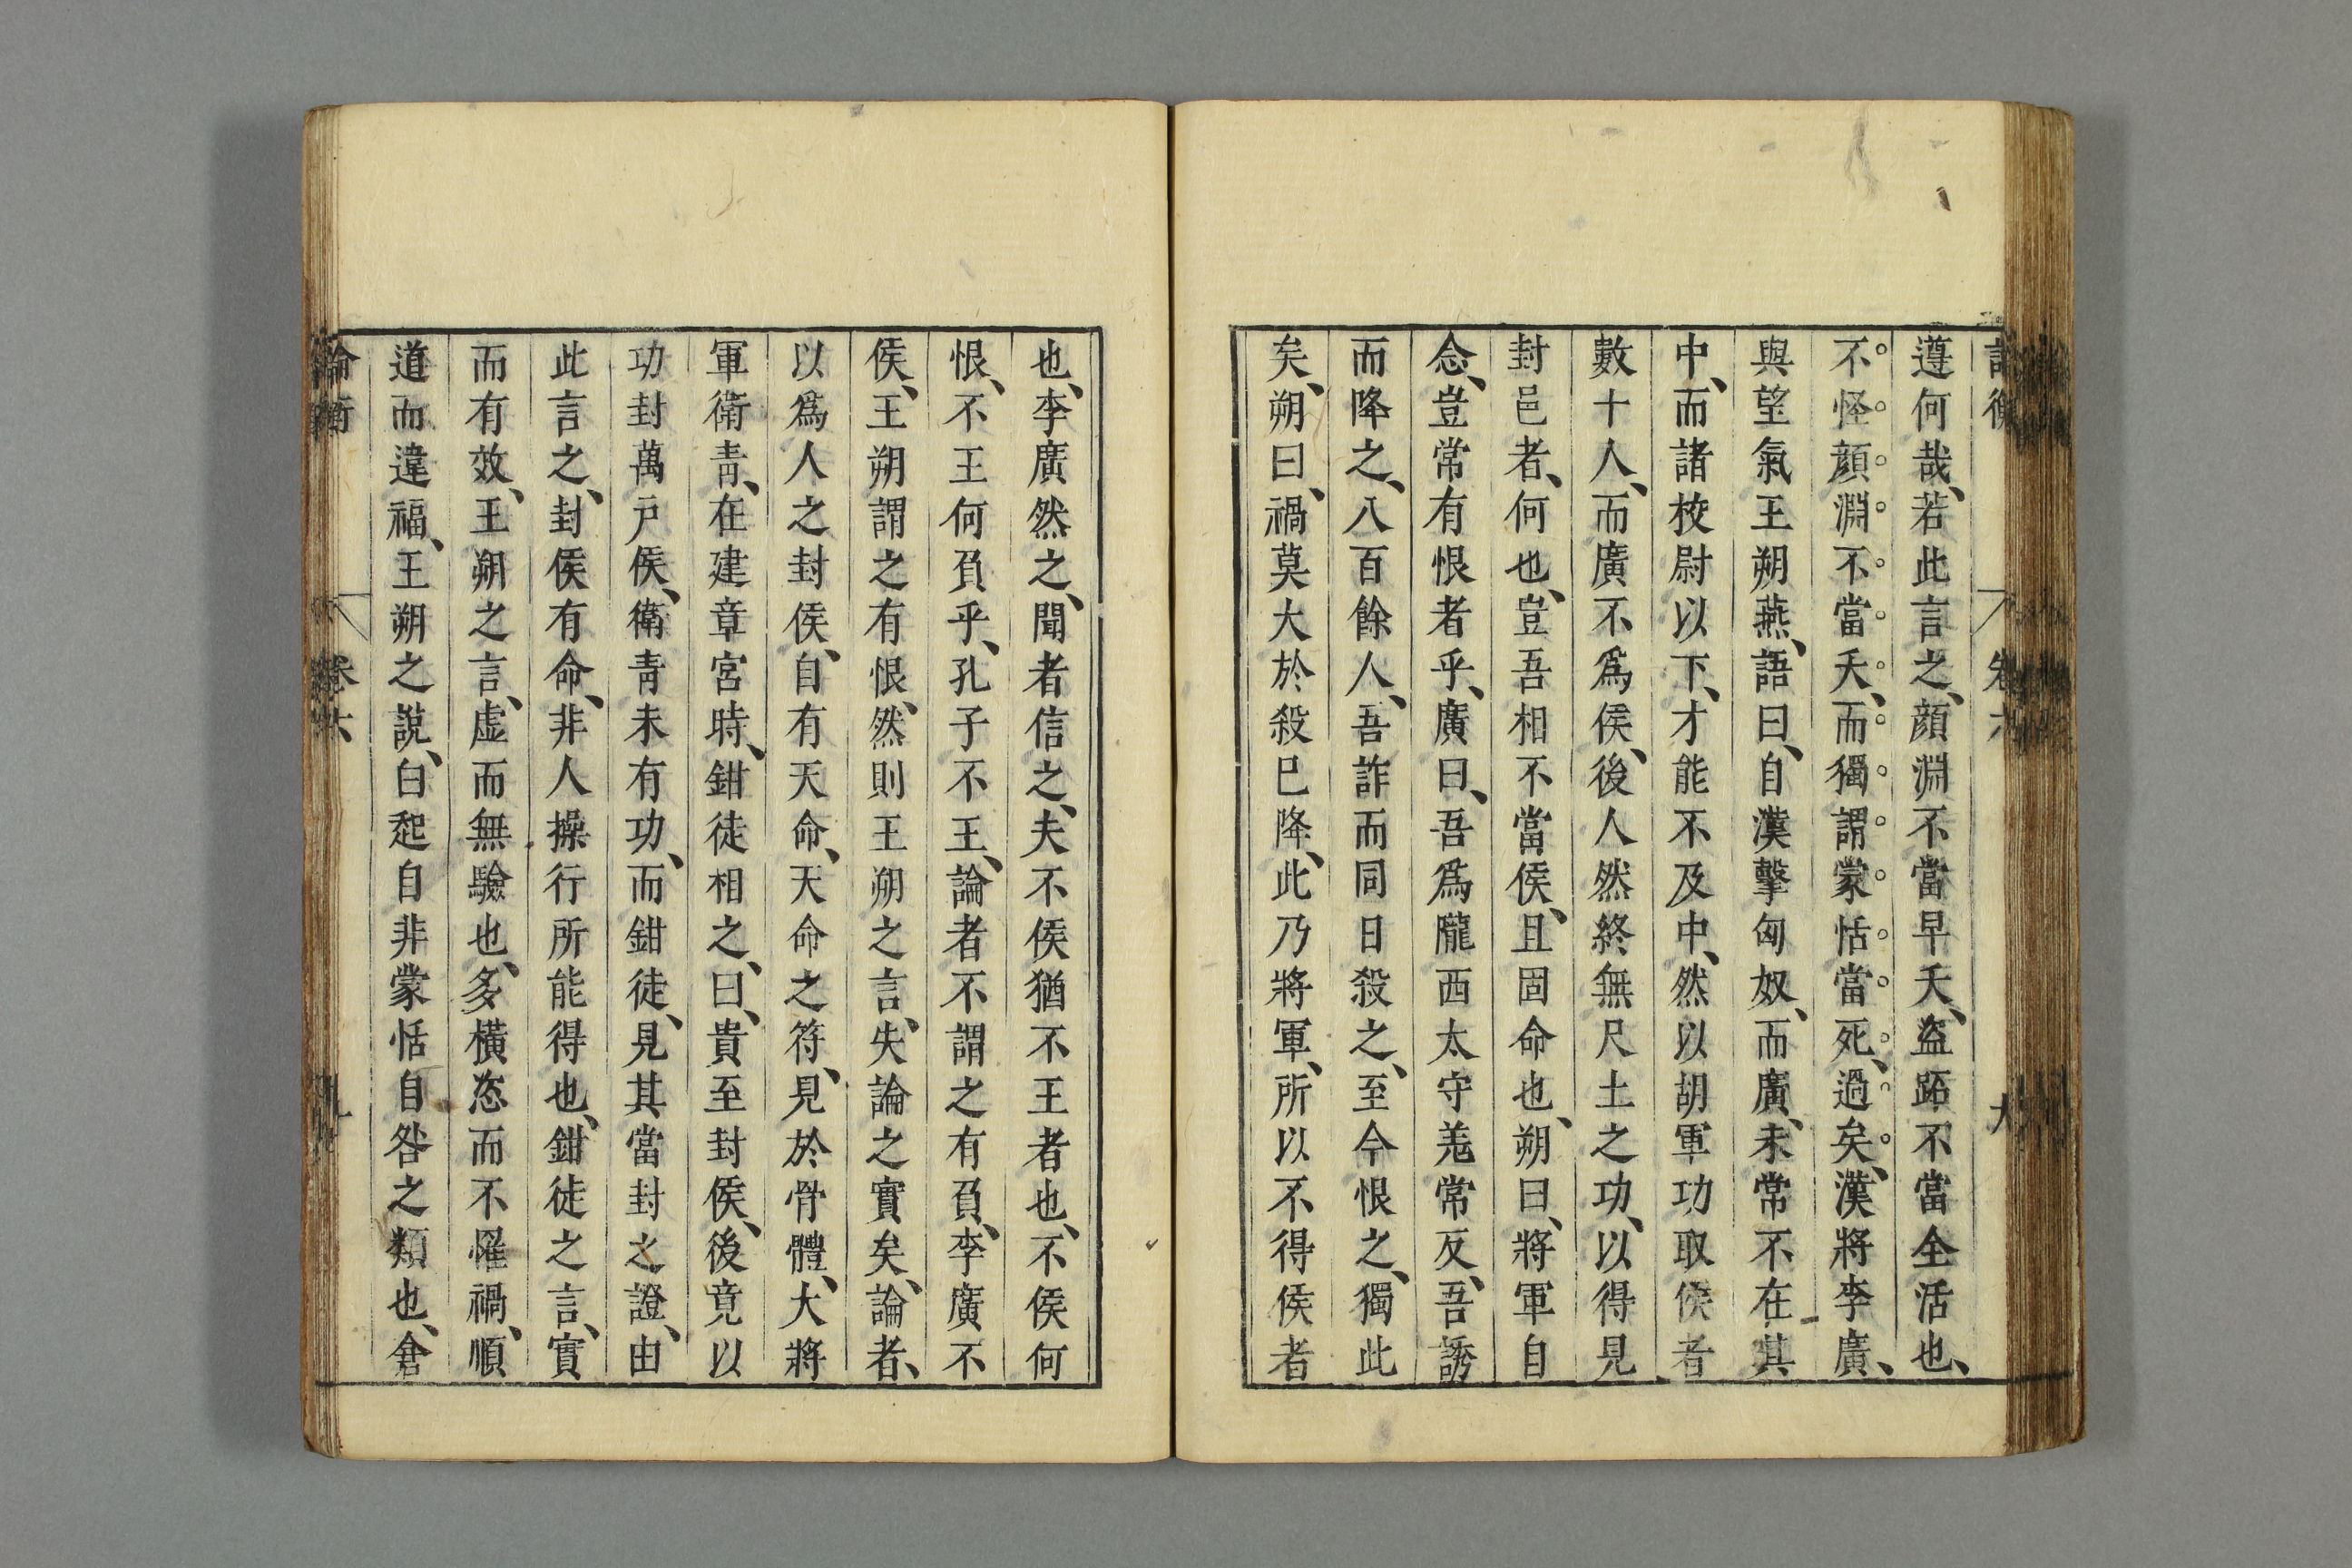 遵何哉、若此言之、顔淵不當早夭、盗跖不當全活也、
不怪顔淵不當夭、而獨謂蒙恬當死、過矣、漢將李廣、
與望氣王朔燕、語曰、自漢擊匈奴、而廣、未常不在其
中、而諸校尉以下、才能不及中、然以胡軍功取侯者
數十人、而廣不爲侯、後人然終無尺土之功、以得見
封邑者、何也、豈吾相不當侯、且固命也、朔曰、將軍自
念、豈常有恨者乎、廣曰、吾爲隴西太守羌常反、吾誘
而降之、八百餘人、吾詐而同日殺之、至今恨之、獨此
矣、朔曰、禍莫大於殺已降、此乃將軍、所以不得侯者
也、李廣然之、聞者信之、夫不侯猶不王者也、不侯何
恨、不王何負乎、孔子不王、論者不謂之有負、李廣不
侯、王朔謂之有恨、然則王朔之言、失論之實矣、論者、
以爲人之封侯、自有天命、天命之符、見於骨體、大將
軍衛青、在建章宮時、鉗徒相之、曰、貴至封侯、後竟以
功封萬戸侯、衛青未有功、而鉗徒、見其當封之證、由
此言之、封侯有命、非人操行所能得也、鉗徒之言、實
而有效、王朔之言、虚而無驗也、多橫恣而不罹禍、順
道而違福、王朔之說、白起自非蒙恬自咎之類也、倉
論衡 卷六